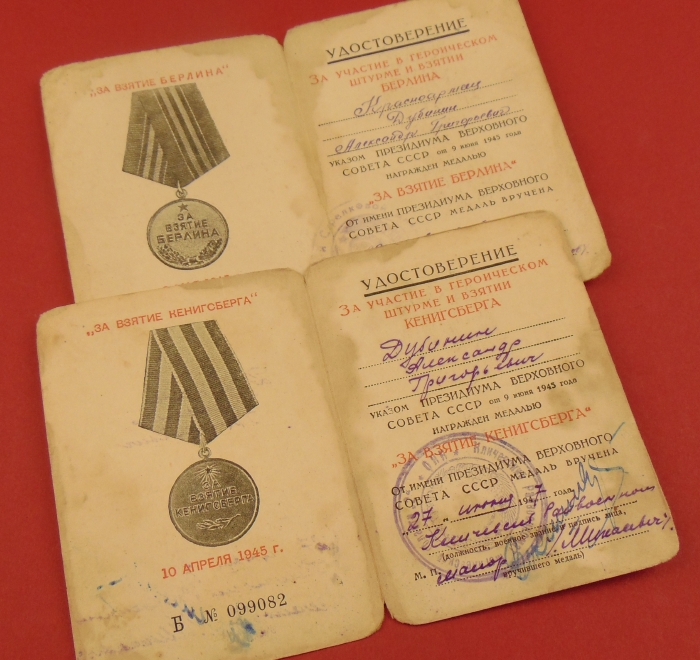 „ЗА ВЗЯТИЕ БЕРЛИНА“
ЗА
ВЗЯТИЕ
БЕРЛИНА
УДОСТОВЕРЕНИЕ
ЗА УЧАСТИЕ В ГЕРОИЧЕСКОМ
ШТУРМЕ И ВЗЯТИИ
БЕРЛИНА
Красноармеец
Дубинин
Александр Григорьевич
УКАЗОМ ПРЕЗИДИУМА ВЕРХОВНОГО
СОВЕТА СССР от 9 июня 1945 года
НАГРАЖДЕН МЕДАЛЬЮ
„ЗА ВЗЯТИЕ БЕРЛИНА“
От имени ПРЕЗИДИУМА ВЕРХОВНОГО
СОВЕТА СССР МЕДАЛЬ ВРУЧЕНА
„ЗА ВЗЯТИЕ КЕНИГСБЕРГА“
ЗА
ВЗЯТИЕ
КЕНИГСБЕРГА
10 АПРЕЛЯ 1945 г.
Б № 099082
УДОСТОВЕРЕНИЕ
ЗА УЧАСТИЕ В ГЕРОИЧЕСКОМ
ШТУРМЕ И ВЗЯТИИ
КЕНИГСБЕРГА
Дубинин
Александр
Григорьевич
УКАЗОМ ПРЕЗИДИУМА ВЕРХОВНОГО
СОВЕТА СССР от 9 июня 1945 года
НАГРАЖДЕН МЕДАЛЬЮ
„ЗА ВЗЯТИЕ КЕНИГСБЕРГА“
От имени ПРЕЗИДИУМА ВЕРХОВНОГО
СОВЕТА СССР МЕДАЛЬ ВРУЧЕНА
„27“ июня 1947 года
(должность, военное звание и подпись лица,
М. П. майор
вручившего медаль)